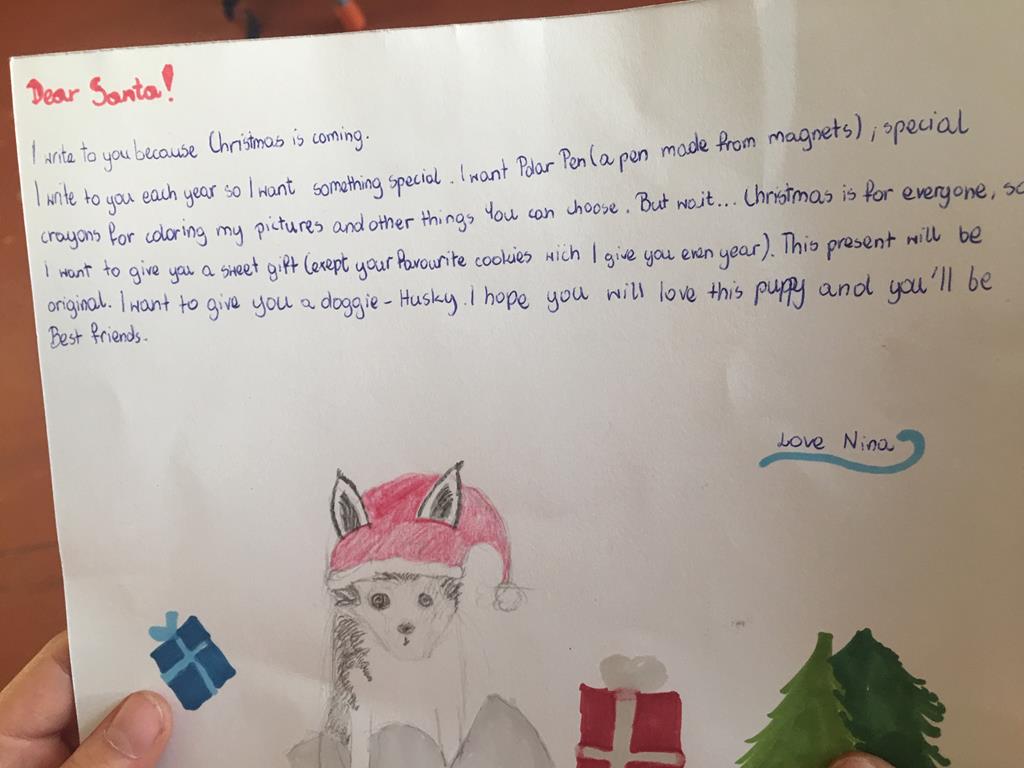 Dear Santa!
I write to you because Christmas is coming.
I write to you each year so I want something special. I want Polar Pen (a pen made from magnets), special
crayons for coloring my pictures and other things You can choose. But wait... Christmas is for everyone, so
I want to give you a sweet gift (exept your favourite cookies wich I give you even year). This present will be
original. I want to give you a doggie - Husky. I hope you will love this puppy and you'll be
Best friends.
Love Nina